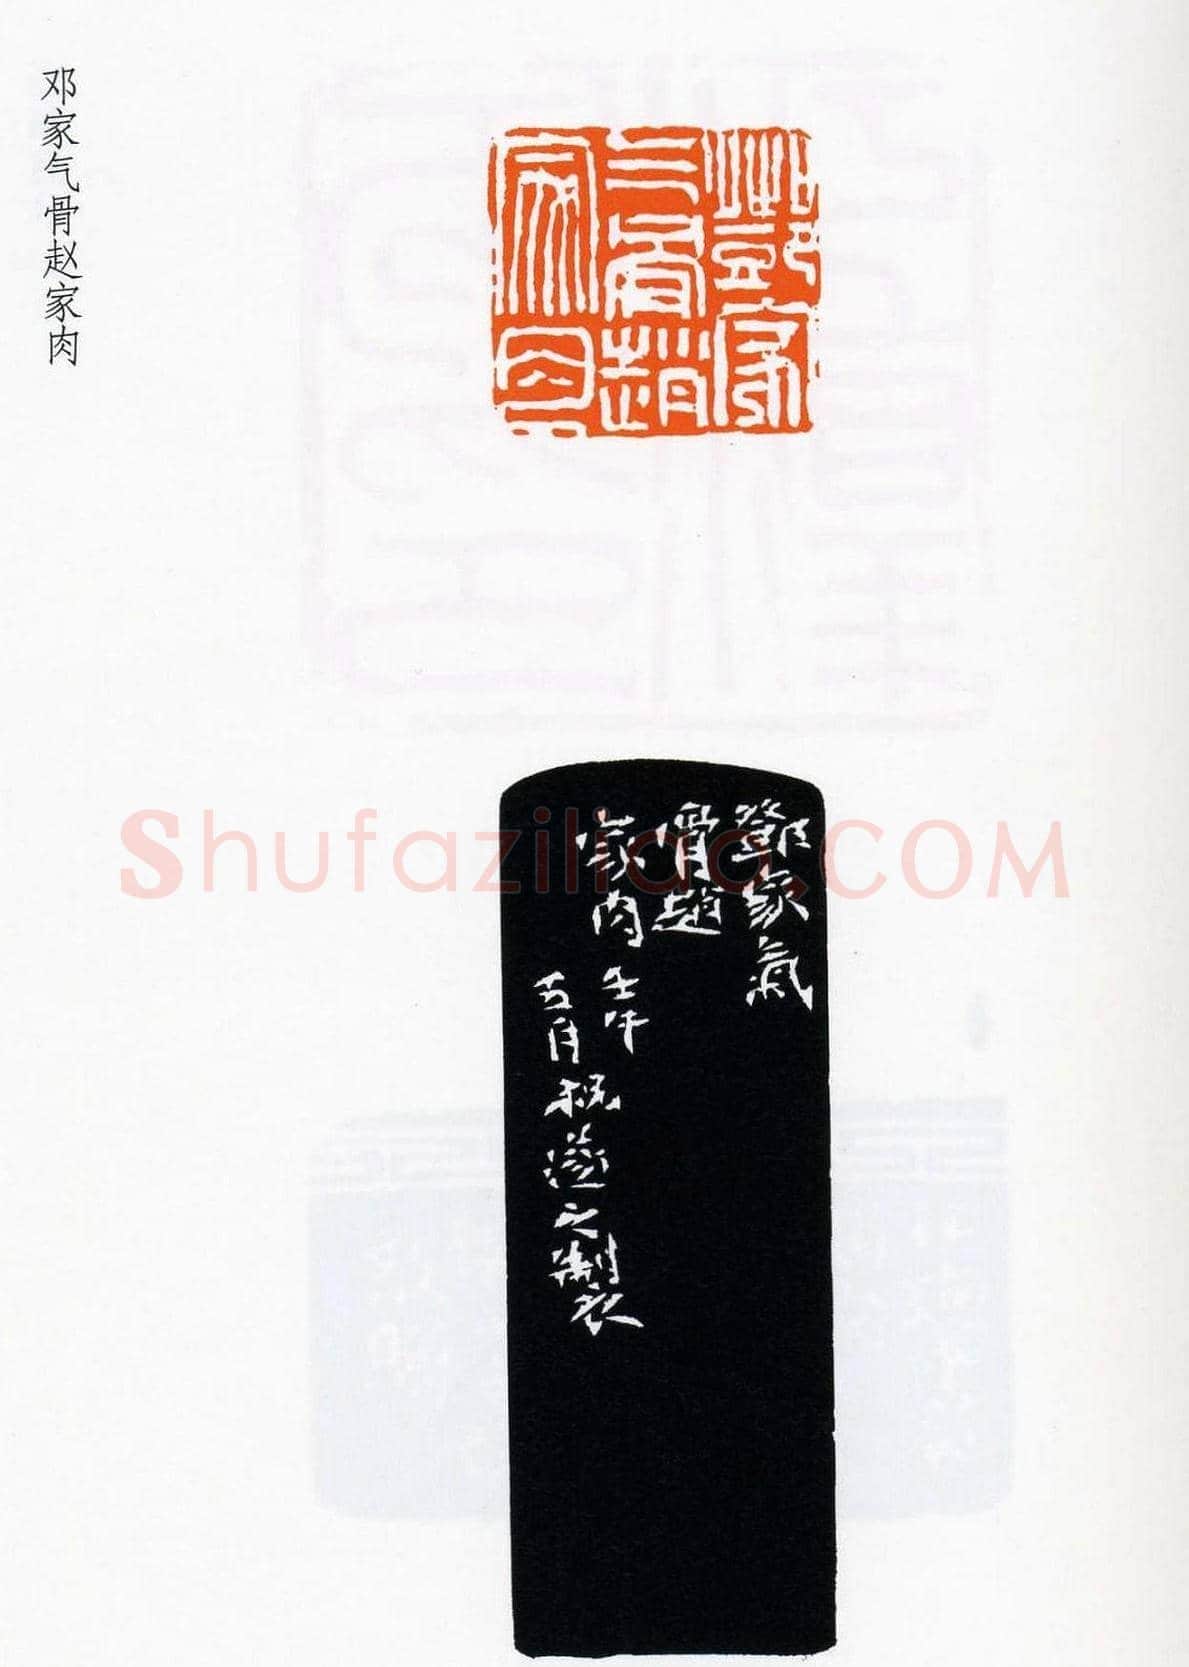 邓家气骨赵家肉
鄧家
气骨趙
家肉
鄧家氣
骨趙
家肉 壬午
五月祝遂之製
Shufaziliao.COM